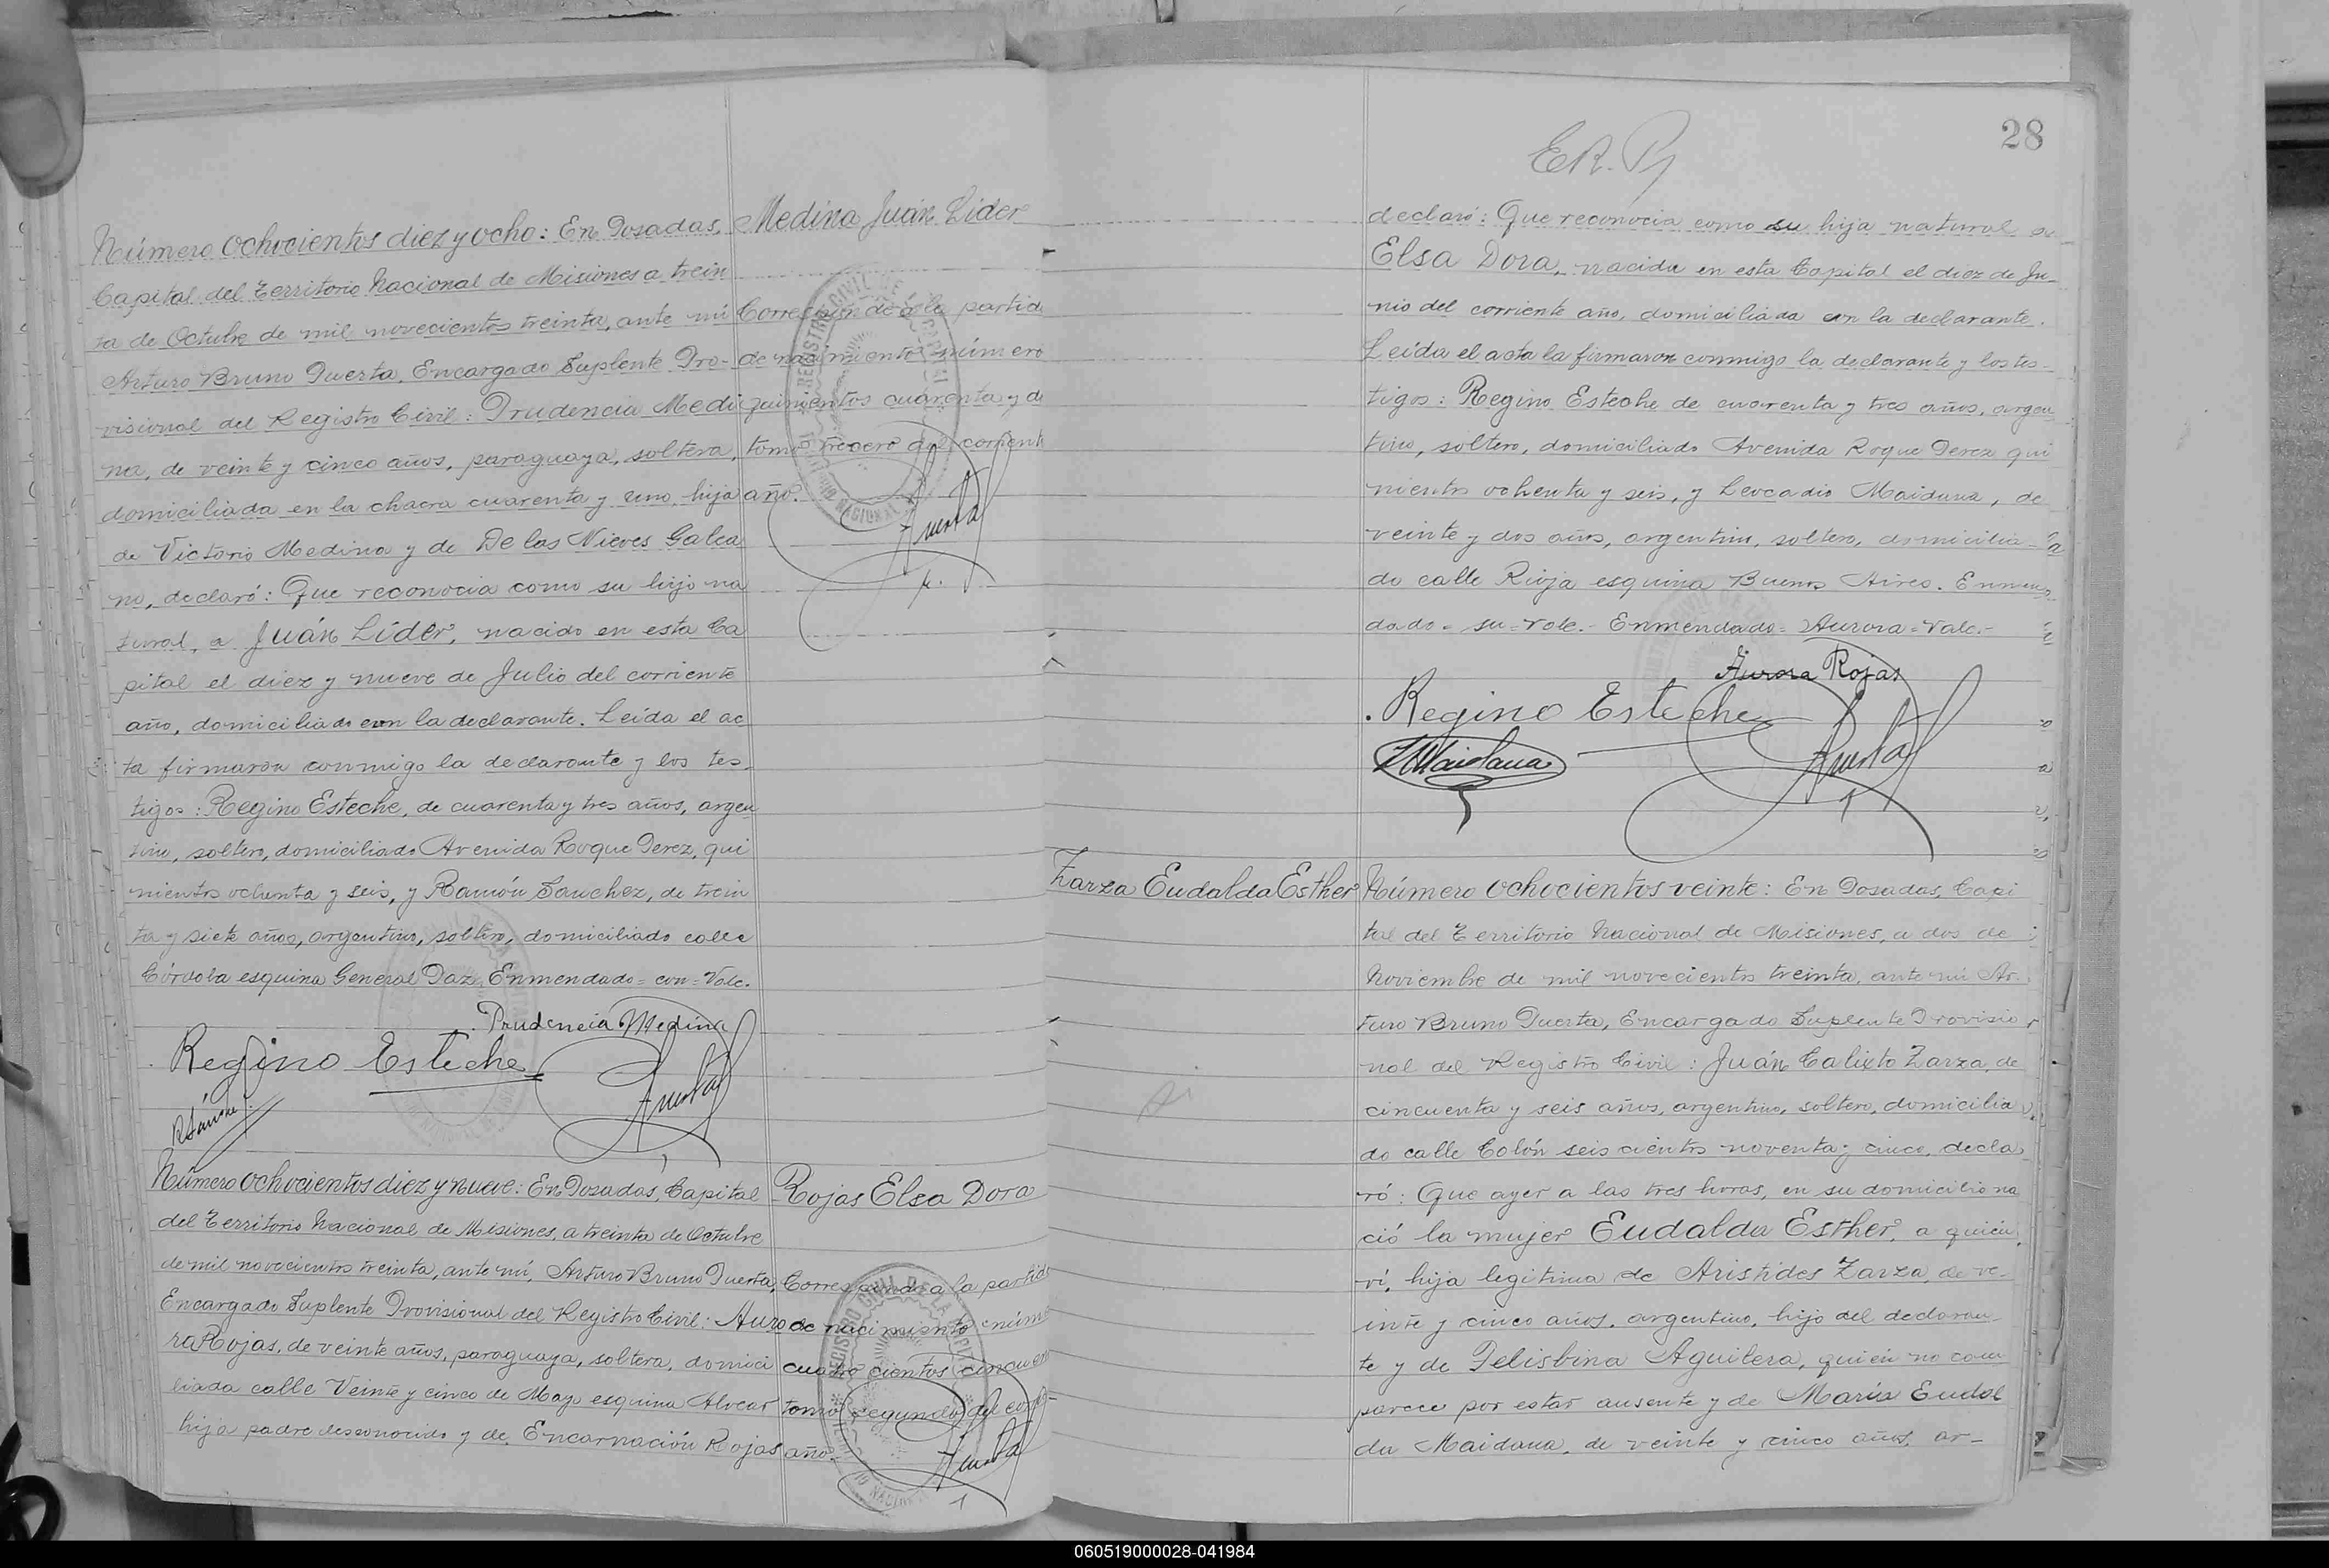 Número ochocientos diez y ocho: En Posadas,
Capital del Territorio Nacional de Misiones a trein
ta de Octubre de mil novecientos treinta, ante mí
Arturo Bruno Puerta, Encargado Suplente Pro-
visional del Registro Civil: Prudencia Medi
na, de veinte y cinco años, paraguaya, soltera,
domiciliada en la chacra cuarenta y uno, hija
de Victorio Medina y de De las Nieves Galea
no, declaró: Que reconocia como su hijo na
tural, a Juán Líder, nacido en esta Ca
pital el diez y nueve de Julio del corriente
año, domiciliado con la declarante. Leída el ac
ta firmaron conmigo la declarante y los tes-
tigos: Regino Esteche, de cuarenta y tres años, argen
tino, soltero, domiciliado Avenida Roque Perez, qui
nientos ochenta y seis, y Ramón Sanchez, de trein
ta y siete años, argentino, soltero, domiciliado calle
Córdoba esquina General Paz. Enmendado=con=Vale.
Prudencia Medina
Regino Esteche
RSánchez
Puerta
Medina Juán Lider
Corresponde a la partida
de nacimiento número
quinientos cuarenta y
tomo tercero del corriente
año.
Puerta
Número ochocientos diez y nueve: En Posadas, Capital
del Territorio Nacional de Misiones, a treinta de Octubre
de mil novecientos treinta, ante mí, Arturo Bruno Puerta,
Encargado Suplente Provisional del Registro Civil: Auro
ra Rojas, de veinte años, paraguaya, soltera, domici
liada calle Veinte y cinco de Mayo esquina Alvear
hija padre desconocido y de Encarnación Rojas
Rojas Elsa Dora
Corresponde a la partida
de nacimiento núme
cuatrocientos cincuen
tomo segundo del corri-
año.
Puerta
28
ER.
declaró: Que reconocia como su hija natural a
Elsa Dora, nacida en esta Capital el diez de Ju-
nio del corriente año, domiciliada con la declarante.
Leída el acta la firmaron conmigo la declarante y los tes-
tigos: Regino Esteche de cuarenta y tres años, argen
tino, soltero, domiciliado Avenida Roque Perez qui
nientos ochenta y seis, y Leocadio Maidana, de
veinte y dos años, argentino, soltero, domicilia-
do calle Rioja esquina Buenos Aires. Enmen
dado=su=vale.- Enmendado=Aurora=Vale.-
Aurora Rojas
Regino Esteche
LMaidana
Puerta
Zarza Eudalda Esther
Número ochocientos veinte: En Posadas, Capi
tal del Territorio Nacional de Misiones, a dos de
Noviembre de mil novecientos treinta, ante mí Ar-
turo Bruno Puerta, Encargado Suplente Provisio
nal del Registro Civil: Juán Calixto Zarza, de
cincuenta y seis años, argentino, soltero, domicilia
do calle Colón seiscientos noventa y cinco, decla
ró: Que ayer a las tres horas, en su domicilio na
ció la mujer Eudalda Esther, a quien
ví, hija legitima de Aristides Zarza, de ve-
inte y cinco años, argentino, hijo del declaran-
te y de Felisbina Aguilera, quién no com
parece por estar ausente y de María Eudal
da Maidana, de veinte y cinco años, ar-
060519000028-041984